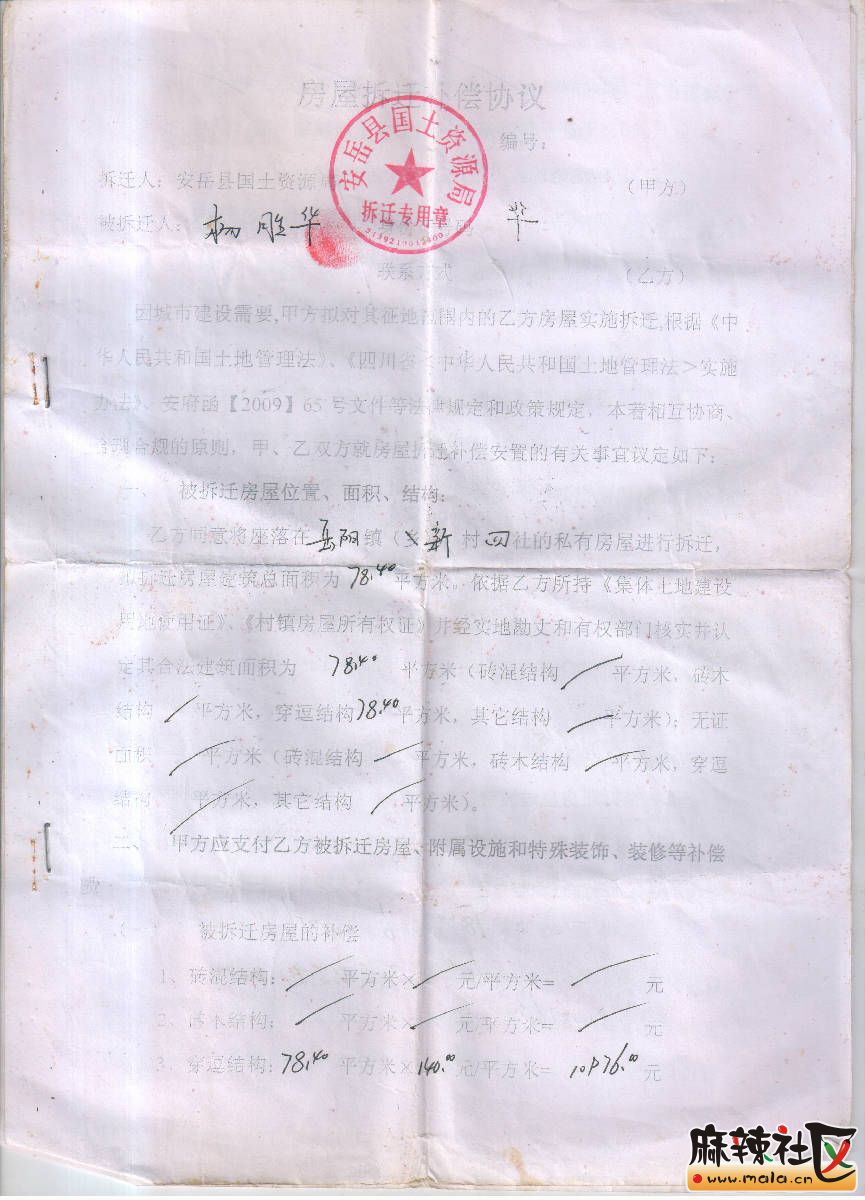 房屋拆迁补偿协议
编号:
安岳县国土资源局
拆迁专用章
拆迁人:安岳县国土资源局 (甲方)
被拆迁人: 杨胜华 号码 华
联系方式 (乙方)
因城市建设需要,甲方拟对其征地范围内的乙方房屋实施拆迁,根据《中
华人民共和国土地管理法》、《四川省<中华人民共和国土地管理法>实施
办法》、安府函【2009】65号文件等法律规定和政策规定,本着相互协商、
合理合规的原则,甲、乙双方就房屋拆迁补偿安置的有关事宜议定如下:
一、 被拆迁房屋位置、面积、结构:
乙方同意将座落在岳阳镇(乡)新 村 四 社的私有房屋进行拆迁,
拟拆迁房屋建筑总面积为 78.40 平方米。依据乙方所持《集体土地建设
用地使用证》、《村镇房屋所有权证》并经实地勘丈和有权部门核实并认
定其合法建筑面积为 78.40 平方米(砖混结构 平方米,砖木
结构 平方米,穿逗结构78.40平方米,其它结构 平方米);无证
面积 平方米(砖混结构 平方米,砖木结构 平方米,穿逗
结构 平方米,其它结构 平方米)。
二、 甲方应支付乙方被拆迁房屋、附属设施和特殊装饰、装修等补偿
被拆迁房屋的补偿
1、砖混结构: 平方米× 元/平方米= 元
2、砖木结构: 平方米× 元/平方米= 元
3、穿逗结构:78.40 平方米×140.00元/平方米= 10976.00 元
麻辣社区
www.mala.cn